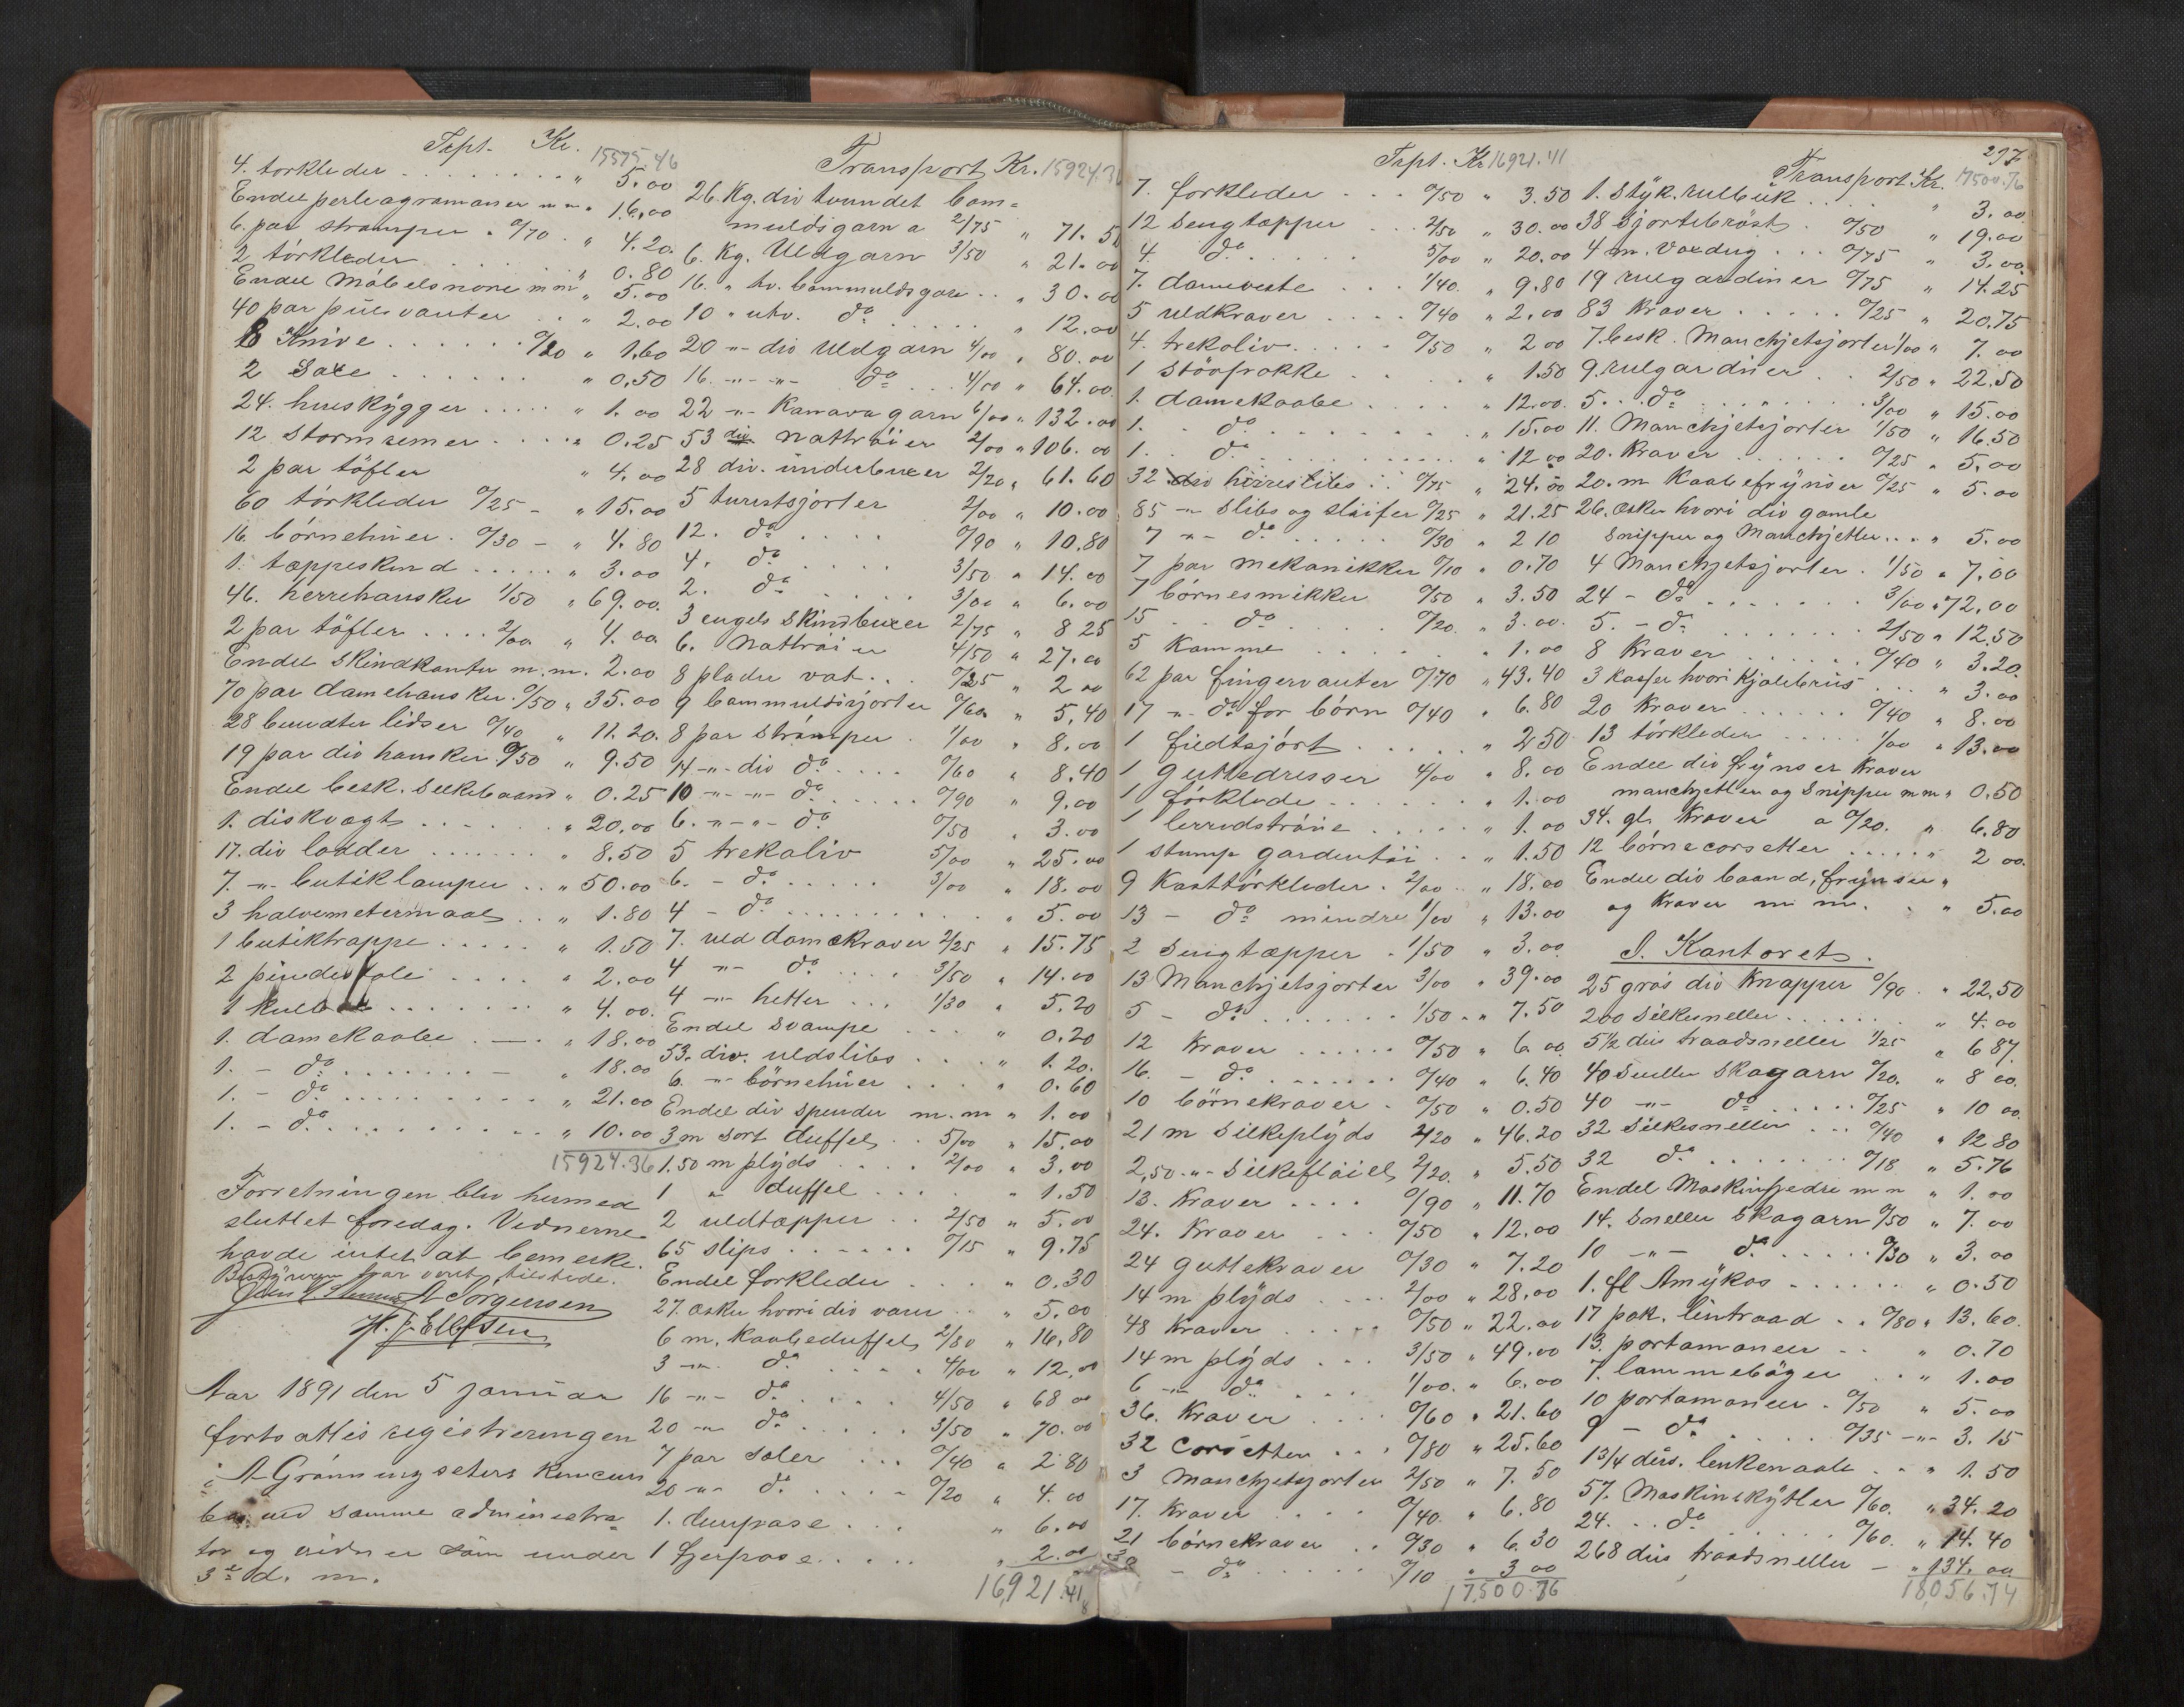 Trpt. Kr. 15575.46
4. torkleder . . . . . . . . " 5.00
Endel perleagramaner m m . " 16.00
6. par strømper . 0/70 . " 4.20
2 tørkleder . . . . . " 0.80
Endel Møbelsnore m m " 5.00
40 par pulsvanter . . " 2.00
8 Knive . . . . . . 0/20 " 1.60
2 Saxe . . . . . . . " 0.50
24. hueskygger . . . . . " 1.00
12 Stormremer . . . . " 0.25
2 par tøfler " 4.00
60 tørkleder 0/25 - " 15.00
16. børnehuer . 0/30 - " 4.80
1. tæppeskind . . . . . " 3.00
46. herrehansker 1/50 " 69.00.
2 par tøfler . . . . 2/00 " 4.00
Endel Skindkanter m.m. 2.00
70 par damehansker . 0/50 " 35.00
28 bundter lidser 0/40 " 11.20.
19 par div hansker 0/50 " 9.50
Endel besk. silkebaand " 0.25
1. diskvægt . . . . . " 20.00
17. div ladder . . . . . . " 8.50
7. -"- butiklamper . . " 50.00
3 halvemetermaal . . " 1.80
1 butiktrappe . . . . . " 1.50
2 pindestole . . . . " 2.00
1 kulbox . . . . . . . " 4.00.
1. damekaabe . — . " 18.00
1. - do . . . . . . . - " 18.00
1. - do . . . . . . . . . " 21.00
1. - do . . . . . . . . . . " 10.00
15924.36
Forretningen blev hermed
sluttet foredag. Vidnerne
havde intet at bemerke.
Bestyreren var vært tilstede.
A Jørgensen
H. J. Ellefsen
Aar 1891 den 5 januar
fortsattes registreringen
i A Grønningseters konkurs
bo ved samme administra-
tor og vidner som under
3die d. m.
Transport Kr. 15924.36
26. Kg. div tvundet bom=
muldsgarn a 2/75 " 71.50
6. Kg. Uldgarn 3/50 " 21.00
16. " tv. bommuldsgarn . . " 30.00
10 " utv. do . . . . . " 12.00
20 -"- div Uldgarn 4/00 " 80.00
16. -"- -"- do . . . 4/00 " 64.00.
22 -"- Kanava garn 6/00 " 132.00
53 div nattrøier 2/00 " 106.00
28 div. underbuxer 2/20 " 61.60
5 turistsjorter 2/00 " 10.00
12. do . . . . 0/90 " 10.80
4. do . . . . . 3/50 " 14.00
2. do . . . . . 3/00 " 6.00
3 engels Skindbuxer 2/75 " 8 25
6. Nattrøier 4/50 " 27.00
8 plader vat . . . 0/25 " 2 00
9 bommuldssjorter 0/60 " 5.40
8 par Strømper . 1/00 " 8.00
14 -"- div do . . . . 0/60 " 8.40
10 -"- -"- do . . . . . . 0/90 " 9.00
6. -"- -"- do 0/50 " 3.00
5 trekoliv 5/00 " 25.00
6. - do . . . . . 3/00 " 18.00
4 - do . . . . . . . . . . " 5.00
7. uld damekraver 2/25 " 15.75
4 -"- do . . . . 3/50 " 14.00
4 -"- hetter . . . 1/30 " 5.20
Endel Svampe . . . . " 0.20
53. div. uldslibs . . . . . " 1.20.
6. -"- børnehuer . . . . " 0.60
Endel div Spender m.m " 1.00
3 m sort duffel . . 5/00 " 15.00
1.50 m plyds . . . . 2/00 " 3.00
1 " duffel . . . . . " 1.50
2 uldtæpper . . 2/50 " 5.00
65 slips . . . . . . 0/15 " 9.75
Endel forkleder . . . . " 0.30
27. æsker hvori div varer . . " 5.00
6 m. Kaabeduffel 2/80 " 16.80
3 -"- do . . . . 4/00 " 12.00
16 -"- do . . . . 4/50 " 68 00
20 -"- do . . . . . 3/50 " 70.00
7 par soler . . . 0/40 " 2 80
20 -"- do . . . . - 0/20 " 4.00
1. turpose . . . " 6.00
1 fjerpose . . . . . " 2.00
16,921.41
Trpt. Kr 16921.41
7. forkleder . . . 0/50 " 3.50
12 Sengtæpper . . . 2/50 " 30.00
4. do . . . . . 5/00 " 20.00
7. dameveste . . . 1/40. " 9.80
5 uldkraver . . . . 0/40 " 2.00
4. trekoliv . . . . . 0/50 " 2 00
1 støvfrakke . . . " 1.50
1. damekaabe . . . . " 12.00.
1. . do . . . . . . . . " 15.00
1. . do . . . . . . . . . . . " 12 00
32 div herreslibs . . 0/75 " 24.00
85 -"- Slibs og sløifer 0/25 " 21.25
7 -"- do . . . . . 0/30 " 2 10
7 par mekanikker 0/10 " 0.70
7 børnesmikker 0/50 " 3.50
15 . . do . . . . . . 0/20. " 3.00.
5 Kamme . . . . . . " 1.00
62 par fingervanter 0/70 " 43.40
17 -"- do for børn 0/40 " 6.80
1 fiedtsjørt . . . . . " 2 50
1 guttedresser 4/00 " 8.00
1 forklede . . . . . . . " 1.00
1 lerredstrøie . . . . . " 1.00
1 stump gardentøi . . " 1.50
9 Kasttørkleder . 2/00 " 18.00
13 - do mindre 1/00 " 13.00
2 Sengtæpper . 1/50 " 3.00
13 Manchjetsjorter 3/00 " 39.00
5 - do . . . . . . . 1/50 . " 7.50
12 Kraver . . . . . . 0/50 " 6.00
16. - do . . . . . . . 0/40 " 6.40
10 børnekraver . 0/50 " 0.50
21 m Silkeplyds 2/20 " 46.20
2,50 -"- Silkefløiel 2/20. " 5.50
13. Kraver . . . . 0/90 " 11.70
24. Kraver . . . 0/50 " 12.00
24 guttekraver 0/30 " 7.20
14 m plyds . . . . 2/00 " 28.00
48 Kraver . . . . . 0/50 " 22.00
14 m plyds . . . 3/50 " 49.00
6 -"- do . . . . 1/00. " 6.00
36. Kraver . . . . 0/60 " 21.60
32 Corsetter . . . 0/80 " 25.60
3 Manchjetsjorter 2/50 " 7.50
17. Kraver . . . . 0/40. " 6.80
21 børnekraver . . 0/30 " 6.30
30 - do . . . . . 0/10 " 3 00
17,500.76
297
Transport Kr. 17500.76
1. Styk. rulbuk . . . . " 3.00
38 Sjortebrøst . 0/50 " 19.00
4 m. Voxdug . . . 0/75 " 3.00
19 rulgardiner 0/75 " 14.25
83 Kraver . . . . . 0/25 " 20.75
7. besk. Manchjetsjorter 1/00 " 7.00
9. rulgardiner . . 2/50 " 22.50
5 . . . do . . . . . . . 3/00 " 15.00
11. Manchjetsjorter 1/50 " 16.50
20. Kraver . . . . . . 0/25 " 5.00
20. m Kaabefrynser 0/25 " 5.00
26. æsker hvori div gamle
Snipper og Manchjetter . . . " 5.00
4 Manchjetsjorter . 1/50 " 7.00
24 - do . . . . . . . 3/00 " 72.00
5. - do . . . . . . . 2/50 " 12.50
8 Kraver . . . . . . 0/40 " 3.20.
3 kasser hvori Kjolebrus . . . " 3.00
20 Kraver . . . . . . 0/40 " 8.00
13 tørkleder . . . . . 1/00 " 13.00
Endel div frynser Kraver
manchjetter og Snipper m m " 0.50
34. gl. Kraver a 0/20. " 6.80
12 børnecorsetter . . . . . " 2 00.
Endel div baand, frynser "
og Kraver m m. . " 5.00
I. Kontoret.
25 gros div Knapper 0/90 . " 22.50
200 Silkesneller . . . . . . . " 4.00
5 1/2 dus traadsneller 1/25 " 6 87
40 Sneller Skogarn 0/20. " 8 00.
40 -"- do . . . . . 0/25 " 10 00.
32 Silkesneller . . . 0/40 " 12 80
32 do . . . . . . . 0/18 " 5.76
Endel Maskinfjedre m m " 1.00
14. Sneller Skogarn 0/50 " 7.00
10 -"- do . . . . . 0/30 " 3.00
1. fl Amykos . . . . . . " 0.50
17 pak. lintraad . . 0/80 " 13.60.
13. portamoneer . . " 0.70
7. lommebøger . . " 1.00
10 portamoneer . 0/50 " 5.00
9 - do . . . . . 0/35 -"- 3.15
13/4 dus. lenkenaale . . " 1.50
57. Maskinskytler 0/60. " 34.20
24. . . do . . . . . . 0/60. " 14.40
268 dus traadsneller - " 134.00
18,056.74